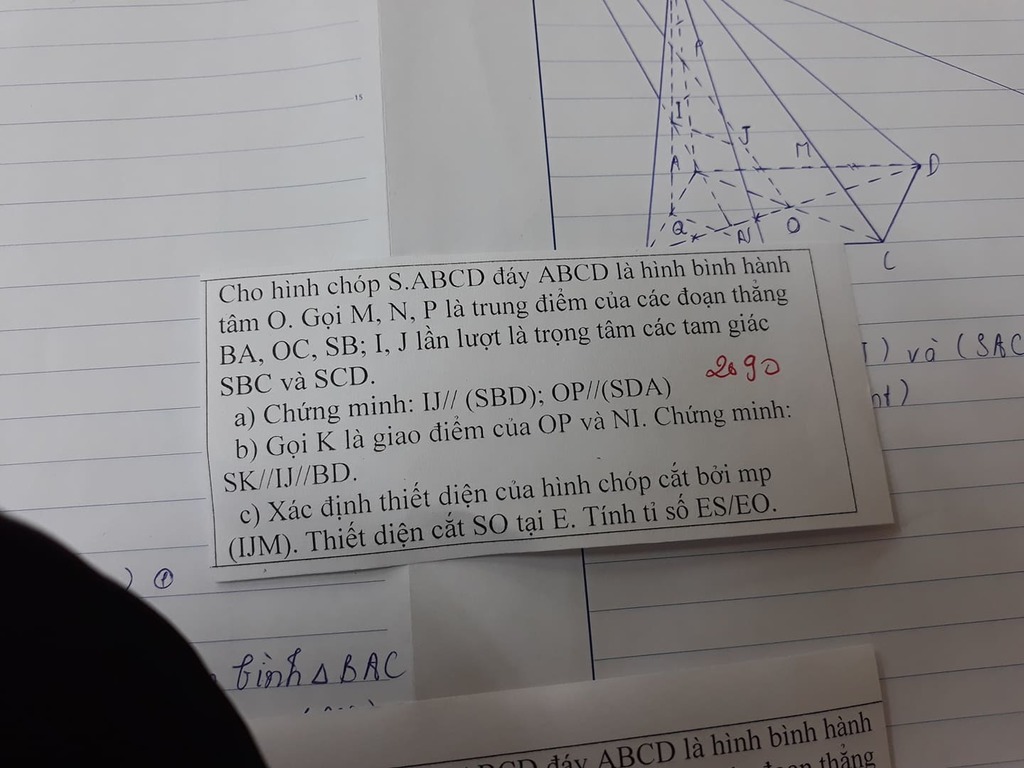 15
P
I
J
A
M
D
Q
N
O
C
Cho hình chóp S.ABCD đáy ABCD là hình bình hành
tâm O. Gọi M, N, P là trung điểm của các đoạn thẳng
BA, OC, SB; I, J lần lượt là trọng tâm các tam giác
SBC và SCD.
2090
a) Chứng minh: IJ// (SBD); OP//(SDA)
b) Gọi K là giao điểm của OP và NI. Chứng minh:
SK//IJ//BD.
c) Xác định thiết diện của hình chóp cắt bởi mp
(IJM). Thiết diện cắt SO tại E. Tính tỉ số ES/EO.
) và (SAC
) ①
bình Δ BAC
đáy ABCD là hình bình hành
đoạn thẳng